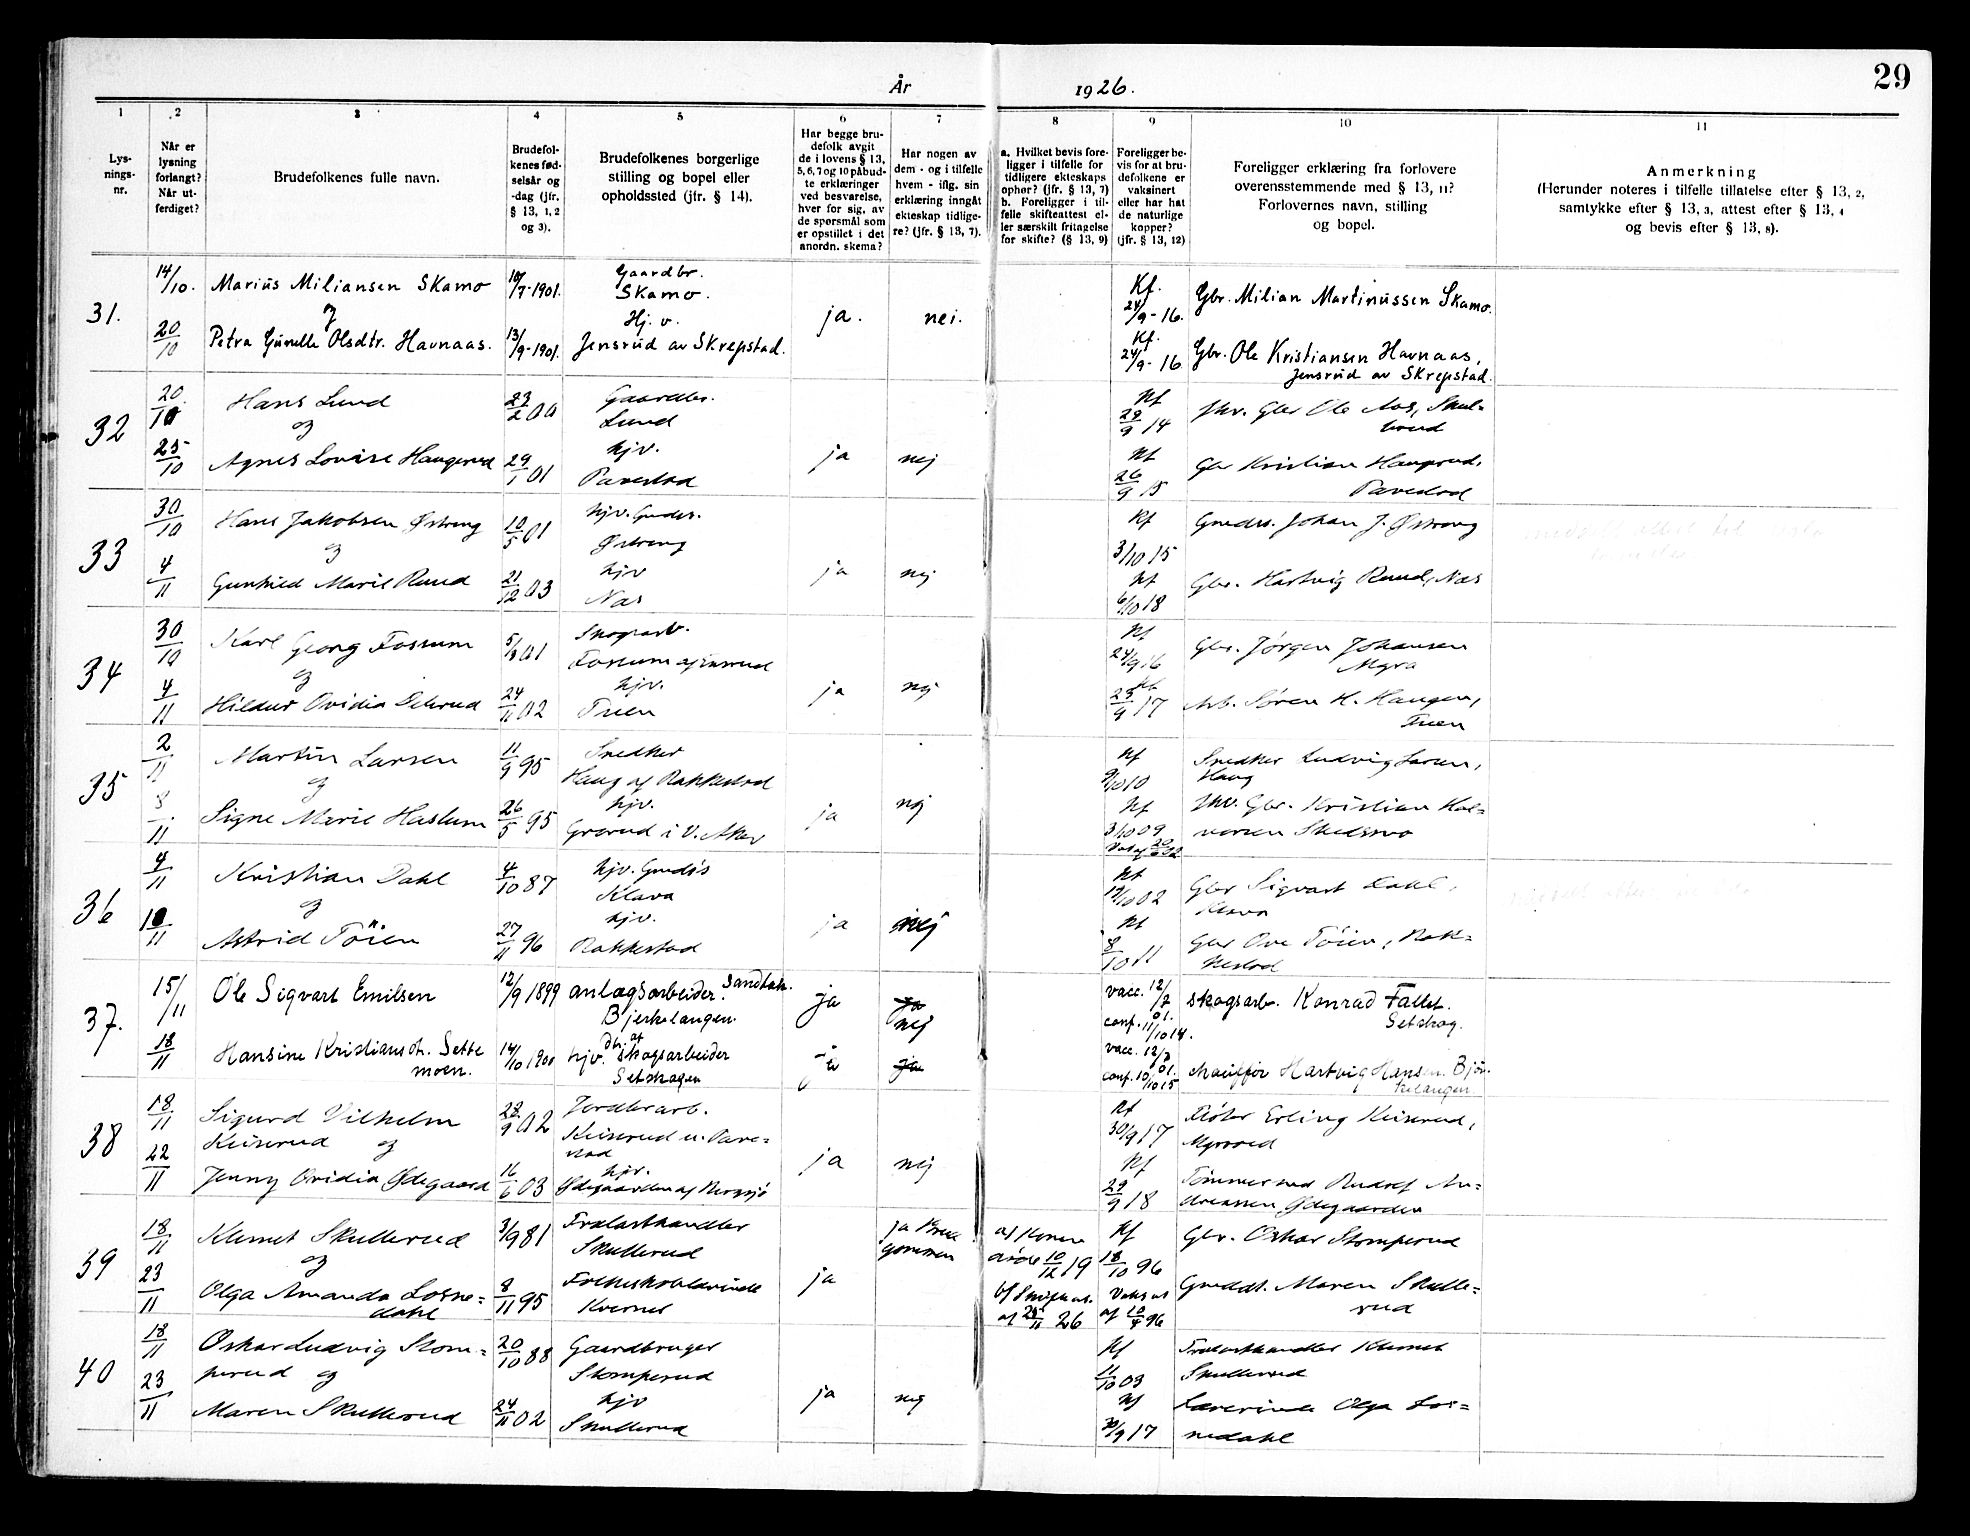 År 1926.
29
1 2 3 4 5 6 7 8 9 10 11
Lys-
nings-
nr.
Når er
lysning
forlangt?
Når ut-
ferdiget?
Brudefolkenes fulle navn.
Brudefol-
kenes fød-
selsår og
-dag (jfr.
§ 13, 1, 2
og 3).
Brudefolkenes borgerlige
stilling og bopel eller
opholdssted (jfr. § 14).
Har begge bru-
defolk avgit
de i lovens § 13,
5, 6, 7 og 10 påbud-
te erklæringer
ved besvarelse,
hver for sig, av
de spørsmål som
er opstillet i det
anordn. skema?
Har nogen av
dem - og i tilfelle
hvem - iflg. sin
erklæring inngått
ekteskap tidlige-
re? (jfr. § 13, 7).
a. Hvilket bevis fore-
ligger i tilfelle for
tidligere ekteskaps
ophør? (jfr. § 13, 7)
b. Foreligger i til-
felle skifteattest el-
ler særskilt fritagelse
for skifte? (§ 13, 9)
Foreligger be-
vis for at bru-
defolkene er
vaksinert
eller har hat
de naturlige
kopper?
(jfr. § 13, 12)
Foreligger erklæring fra forlovere
overensstemmende med § 13, 11?
Forlovernes navn, stilling
og bopel.
Anmerkning
(Herunder noteres i tilfelle tillatelse efter § 13, 2,
samtykke efter § 13, 3, attest efter § 13, 4
og bevis efter § 13, 8).
31.
14/10.
Marius Miliansen Skamo
og
10/7-1901.
Gaardbr.
Skamo.
ja.
nei.
Kf.
24/9-16.
Gbr. Milian Martinussen Skamo.
20/10
Petra Gunelle Olsdtr. Havnaas.
13/9-1901.
Hj. v.
Jensrud av Skrepstad.
Kf.
24/9-16
Gbr. Ole Kristiansen Havnaas,
Jensrud av Skrepstad.
32
20/10
Hans Lund
og
23/2 00
Gaardbr.
Lund
ja
nej
Kf
29/9 14
Gbr Ole Aas,
25/10
Agnes Lovise Haugerud
29/1 01
hjv.
Kf
26/9 15
Gbr Kristian Haugerud,
33
30/10
Hans Jakobsen Østreng
og
10/5 01
hjv. Gmds.
Østreng
ja
nej
Kf
3/10 15
Gmds. Johan J. Østreng
4/11
Gunhild Marie Ruud
21/12 03
hjv
Næs
Kf
6/10 18
Gbr. Hartvig Ruud, Næs
34
30/10
Karl Georg Fossum
og
Skogsarb.
ja
nej
Kf
24/9 16
Gbr. Jørgen Johansen
Myra
4/11
Hildur Ovidia
24/11 02
hjv.
Tuen
Kf
23/9 17
Arb. Søren H. Haugen,
Tuen
35
2/11
Martin Larsen
og
11/9 95
Snedker
Haug af Rakkestad
ja
nej
Kf
9/10 10
Snedker Ludvig Larsen,
Haug
8/11
Signe Marie Haslum
26/5 95
hjv.
Grorud i V. Aker
Kf
3/10 09
Gbr. Kristian Hal-
vorsen Skedsmo
36
4/11
Kristian Dahl
og
4/10 87
hjv. Gmds
Klava
ja
nej
Kf
Gbr Sigvart Dahl,
Klava
10/11
Astrid Töien
27/11 96
hjv.
Rakkestad
Kf
8/10 11
Gbr Ove Töien, Rak-
kestad
37.
15/11
Ole Sigvart Emilsen
12/9 1899
anlægsarbeider. Sandtak.
Bjerkelangen.
ja
ja
nej
vacc. 12/7 01.
conf. 11/10 14.
skogsarb. Konrad Fallet.
Setskog.
18/11
Hansine Kristiansdt. Sette
moen.
14/10 1900
hjv. dtr. af skogsarbeider
Setskogen
ja
ja
vacc. 12/7 01.
conf. 10/10 15
chauffør Hartvig Hansen. Bjør-
kelangen
38
18/11
Sigurd Vilhelm
Keiserud og
Jordbrarb.
ja
nej
Kf
30/9 17
Erling Keiserud,
22/11
Jenny Ovidia Ødegaard
16/6 03
hjv.
Kf
29/9 18
Tømmermd Rudolf An-
dreassen Ødegaarden
39
18/11
Klemet Skullerud
og
3/9 81
Trælasthandler
Skullerud
ja
ja Brud
gommen
af Konen
død 10/12 19
Kf
18/10 96
Gbr. Oskar Stomperud
23/11
Olga Amanda Losne=
dahl
8/11 95
Folkeskolelærerinde
Kvernes
af 23/11 26
Vaks at
af 10/4 96
Gmddt. Maren Skulle=
rud
40
18/11
Oskar Ludvig Stom=
perud og
20/10 88
Gaardbruger
Stomperud
ja
nej
Kf
11/10 03
Trælasthandler Klemet
Skullerud
23/11
Maren Skullerud
24/11 02
hjv
Skullerud
Kf
30/9 17
Lærerinde Olga Los=
nedahl